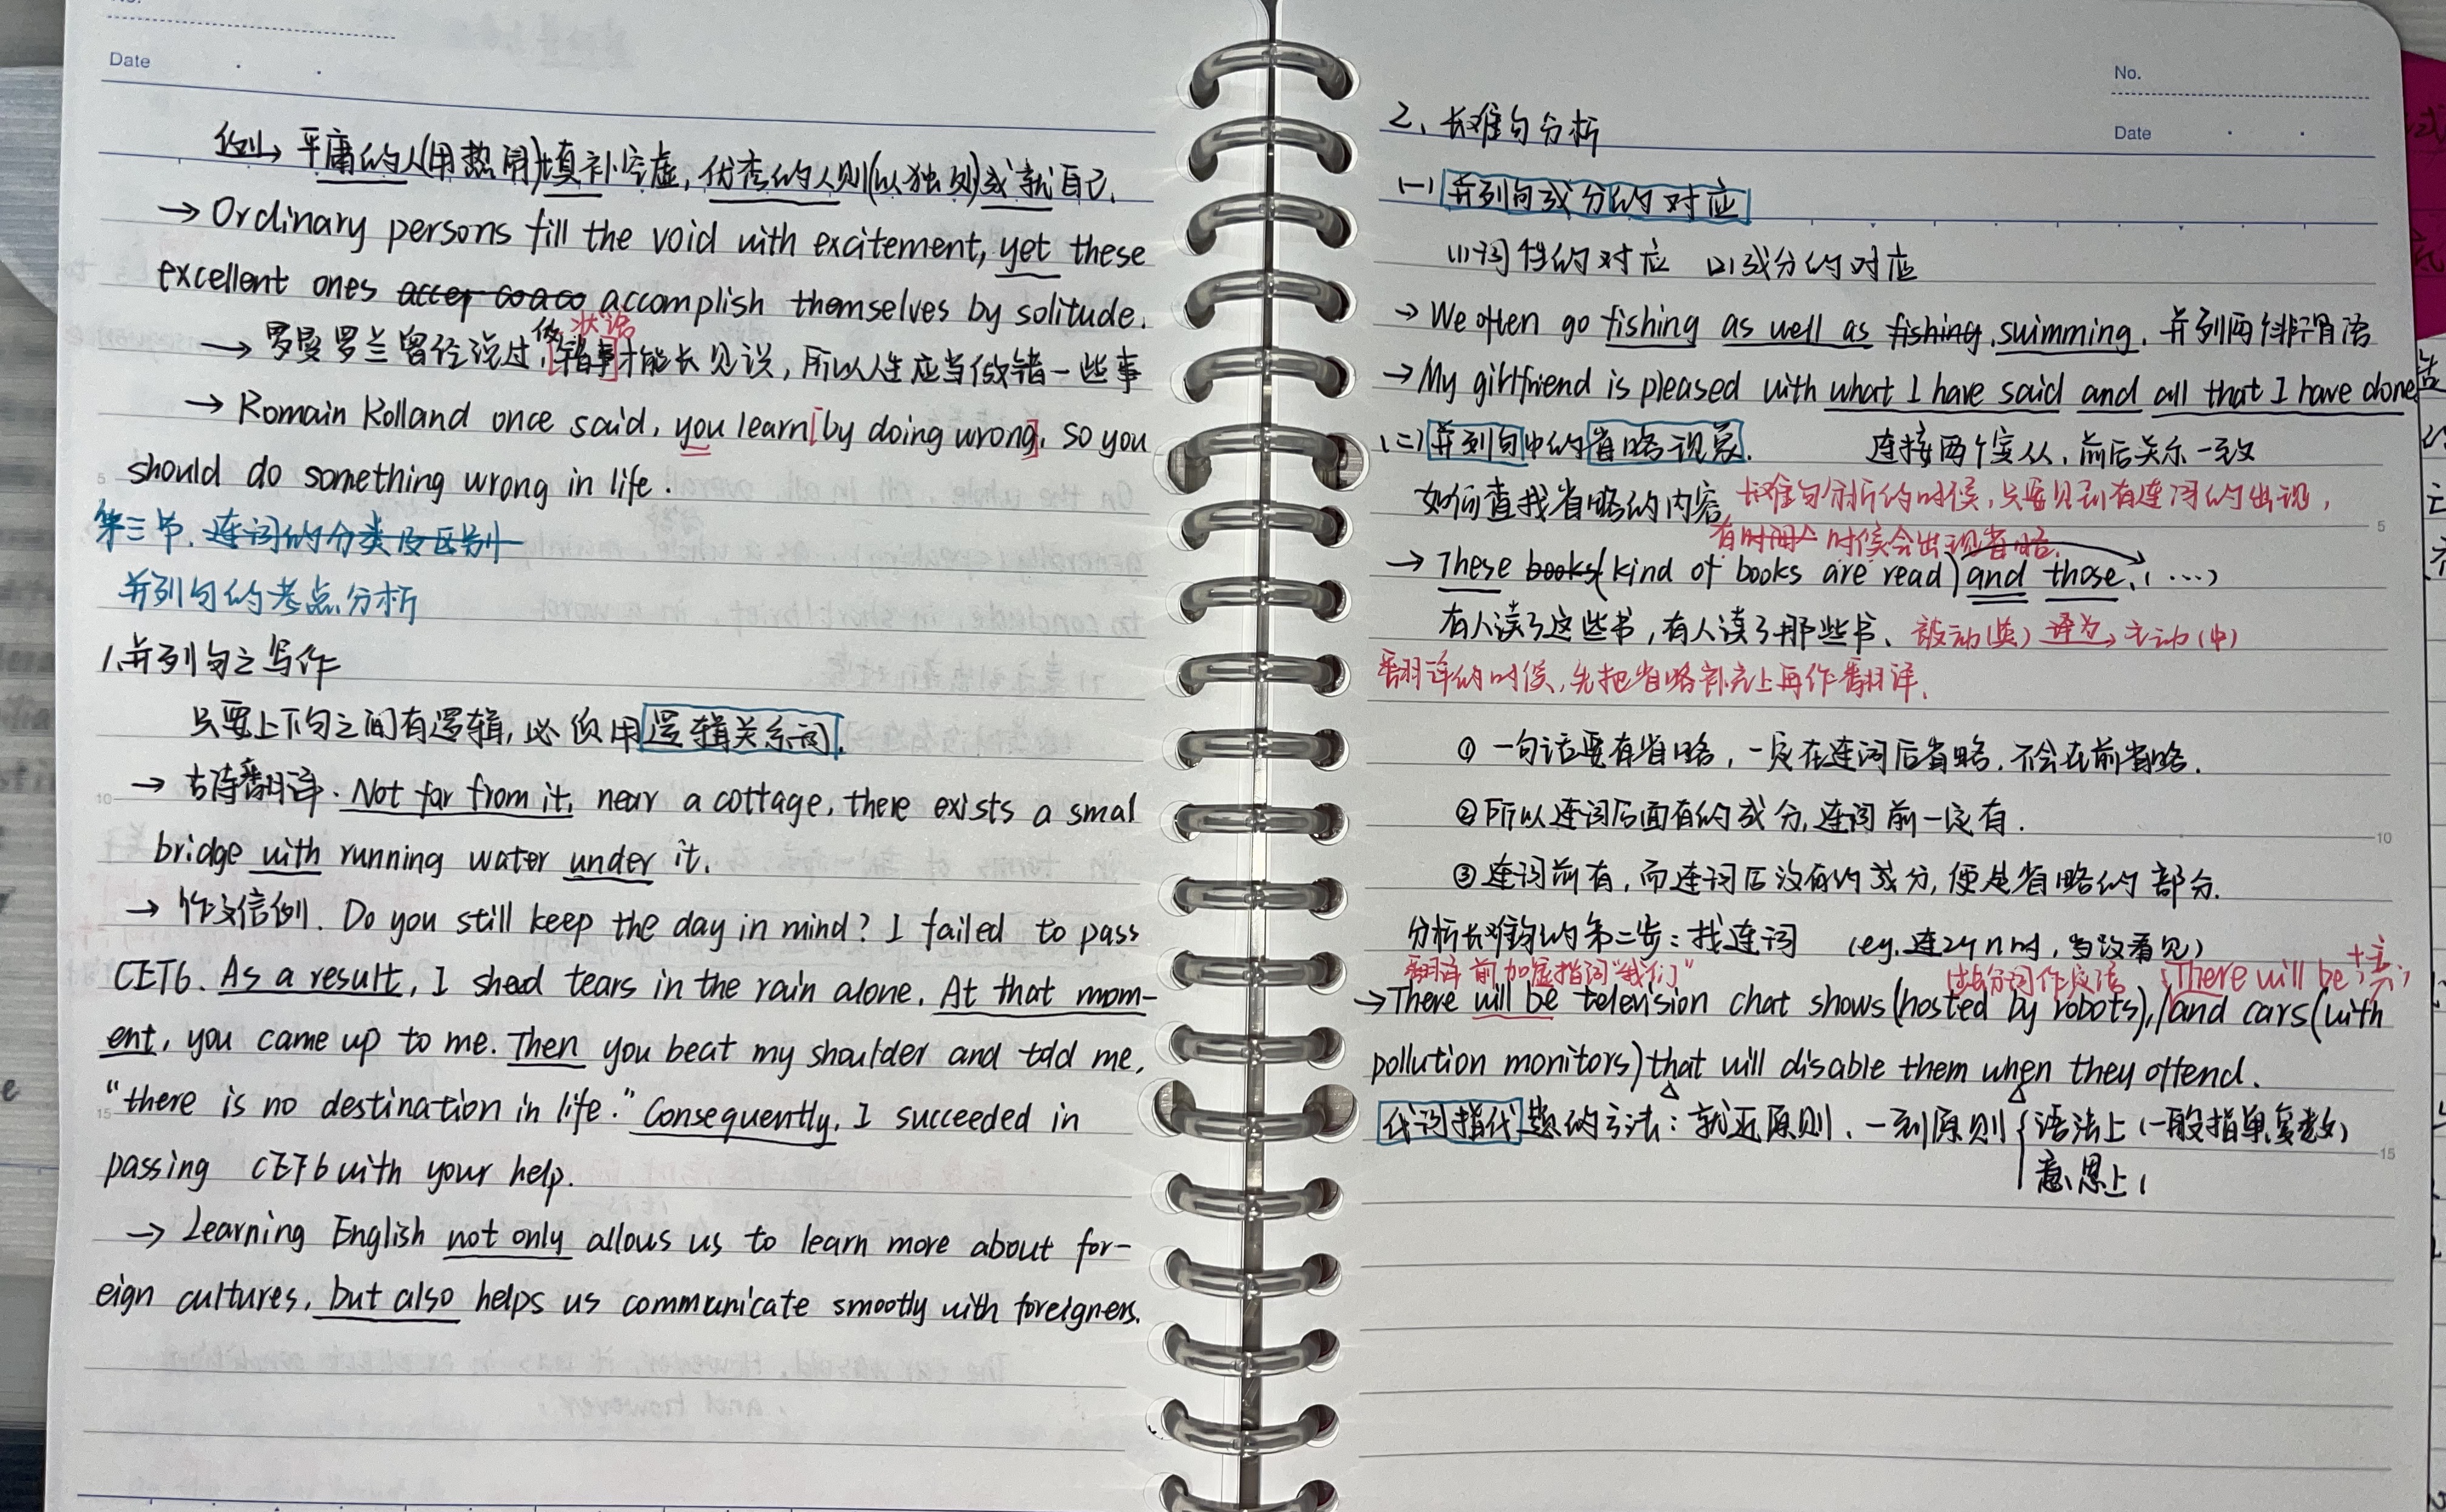 Date
例→ 平庸的人(用热闹)填补空虚，优秀的人则(以独处)成就自己.
→ Ordinary persons fill the void with excitement, yet these
excellent ones accomplish themselves by solitude.
做 状语
→ 罗曼罗兰曾经说过,[错事]才能长见识，所以人生应当做错一些事
→ Romain Rolland once said, you learn [by doing wrong], so you
should do something wrong in life.
第三节. 连词的分类及区别
并列句的考点分析
1.并列句之写作
只要上下句之间有逻辑,必须用逻辑关系词.
→ 古诗翻译. Not far from it, near a cottage, there exists a smal
bridge with running water under it.
→ 作文信例. Do you still keep the day in mind? I failed to pass
CET6. As a result, I shed tears in the rain alone. At that mom-
ent, you came up to me. Then you beat my shoulder and told me,
"there is no destination in life." Consequently, I succeeded in
passing CET6 with your help.
→ Learning English not only allows us to learn more about for-
eign cultures, but also helps us communicate smootly with foreigners.
No.
Date
2、长难句分析
(一)并列句成分的对应
(1)词性的对应 (2)成分的对应
→ We often go fishing as well as fishing, swimming. 并列两个非谓语
→ My girlfriend is pleased with what I have said and all that I have done
(二)并列句中的省略现象. 连接两个宾从，前后关系一致
如何查找省略的内容 长难句分析的时候，只要见到有连词的出现，
有时候会出现省略.
→ These books (kind of books are read) and those. (...)
有人读了这些书，有人读了那些书、 被动(英) 译为→ 主动(中)
翻译的时候，先把省略补充上再作翻译.
① 一句话要有省略，一定在连词后省略.不会在前省略.
②所以连词后面有的成分,连词前一定有.
③连词前有，而连词后没有的成分,便是省略的部分.
分析长难句的第二步：找连词 (eg.连2个n时，当没看见)
翻译前加虚指词"我们" 过去分词作定语 (There will be +主)
→There will be television chat shows (hosted by robots),/and cars (with
pollution monitors) that will disable them when they offend.
代词指代题的方法：就近原则、一致原则{语法上(一般指单,复数)
意思上(